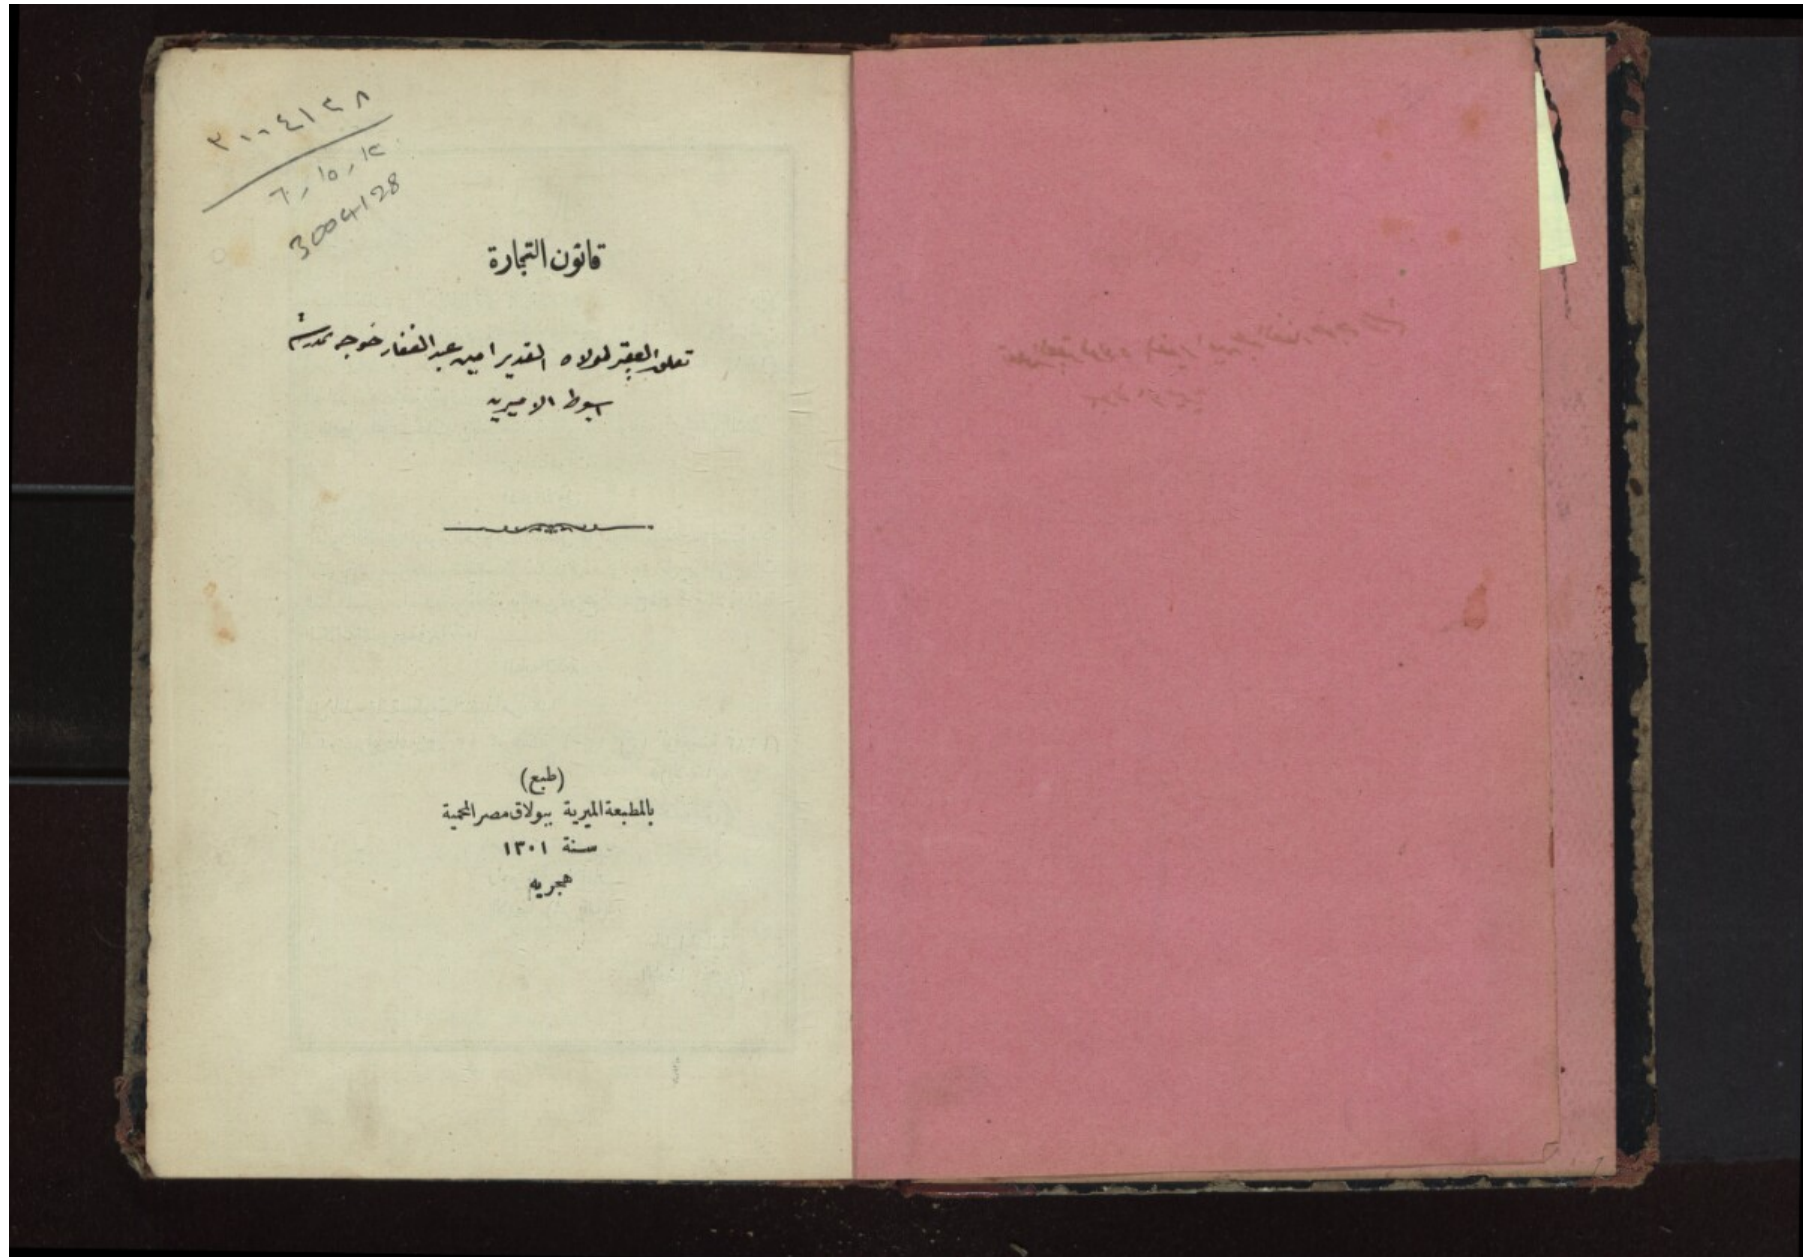 ٣٠٠٤١٢٨
٦٠١٥٠١٢
3004128
قانون التجارة
تعلق الفقير لمولاه القدير امين عبد الغفار خوجه بمدرسة
اسيوط الاميريه
(طبع)
بالمطبعة الميرية ببولاق مصر المحمية
سنة ١٣٠١
هجريه